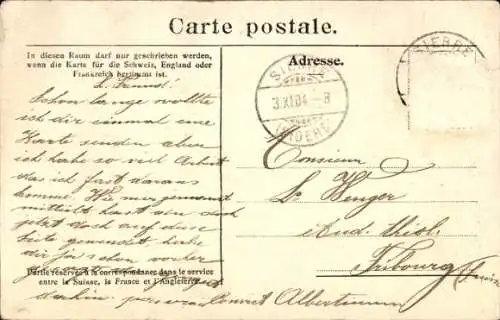 Carte postale.
In diesen Raum darf nur geschrieben werden,
wenn die Karte für die Schweiz, England oder
Frankreich bestimmt ist.
Adresse.
SIERRE
SIERRE
3.XI.04.-8
(SIDERS)
L. Freund!
Schon lange wollte
ich dir einmal eine
Karte senden aber
ich habe so viel Arbeit
das ich fast daraus
komme. Wie mir jemand
mitteilt hast du dich
jetzt doch auf diese
Seite gewendet habe
dir ja schon vorher
Monsieur
Ls Wenger
Aud. théol.
Fribourg (Suisse
Partie réservée à la correspondance dans le service
entre la Suisse, la France et l'Angleterre.
Convict Albertinum